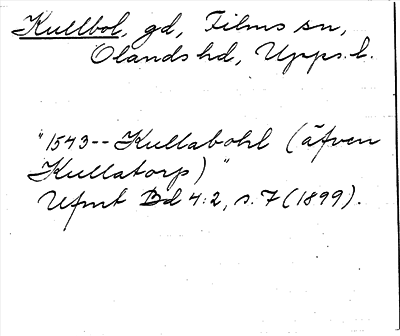 Kullbol, gd, Films sn,
Olands hd, Upps. l.
"1543-- Kullabohl (äfven
Kullatorp)"
Ufmt Bd 4:2, s. 7 (1899).